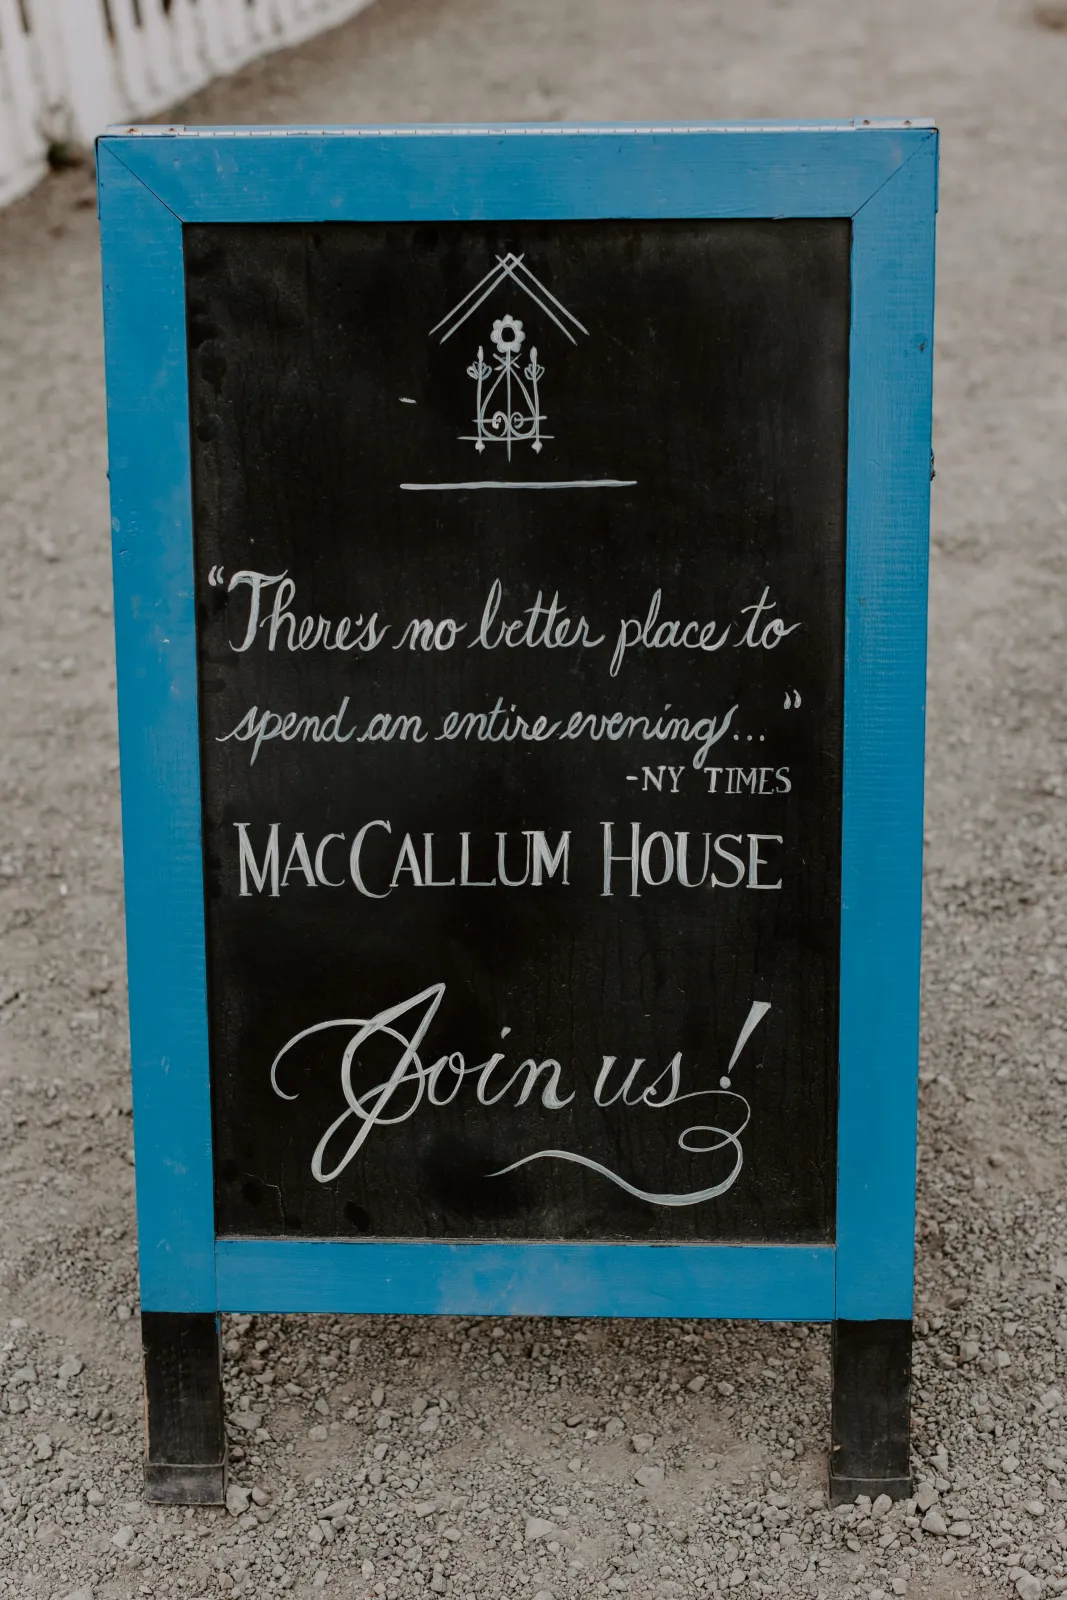 “There's no better place to
spend an entire evening...”
-NY TIMES
MACCALLUM HOUSE
Join us!